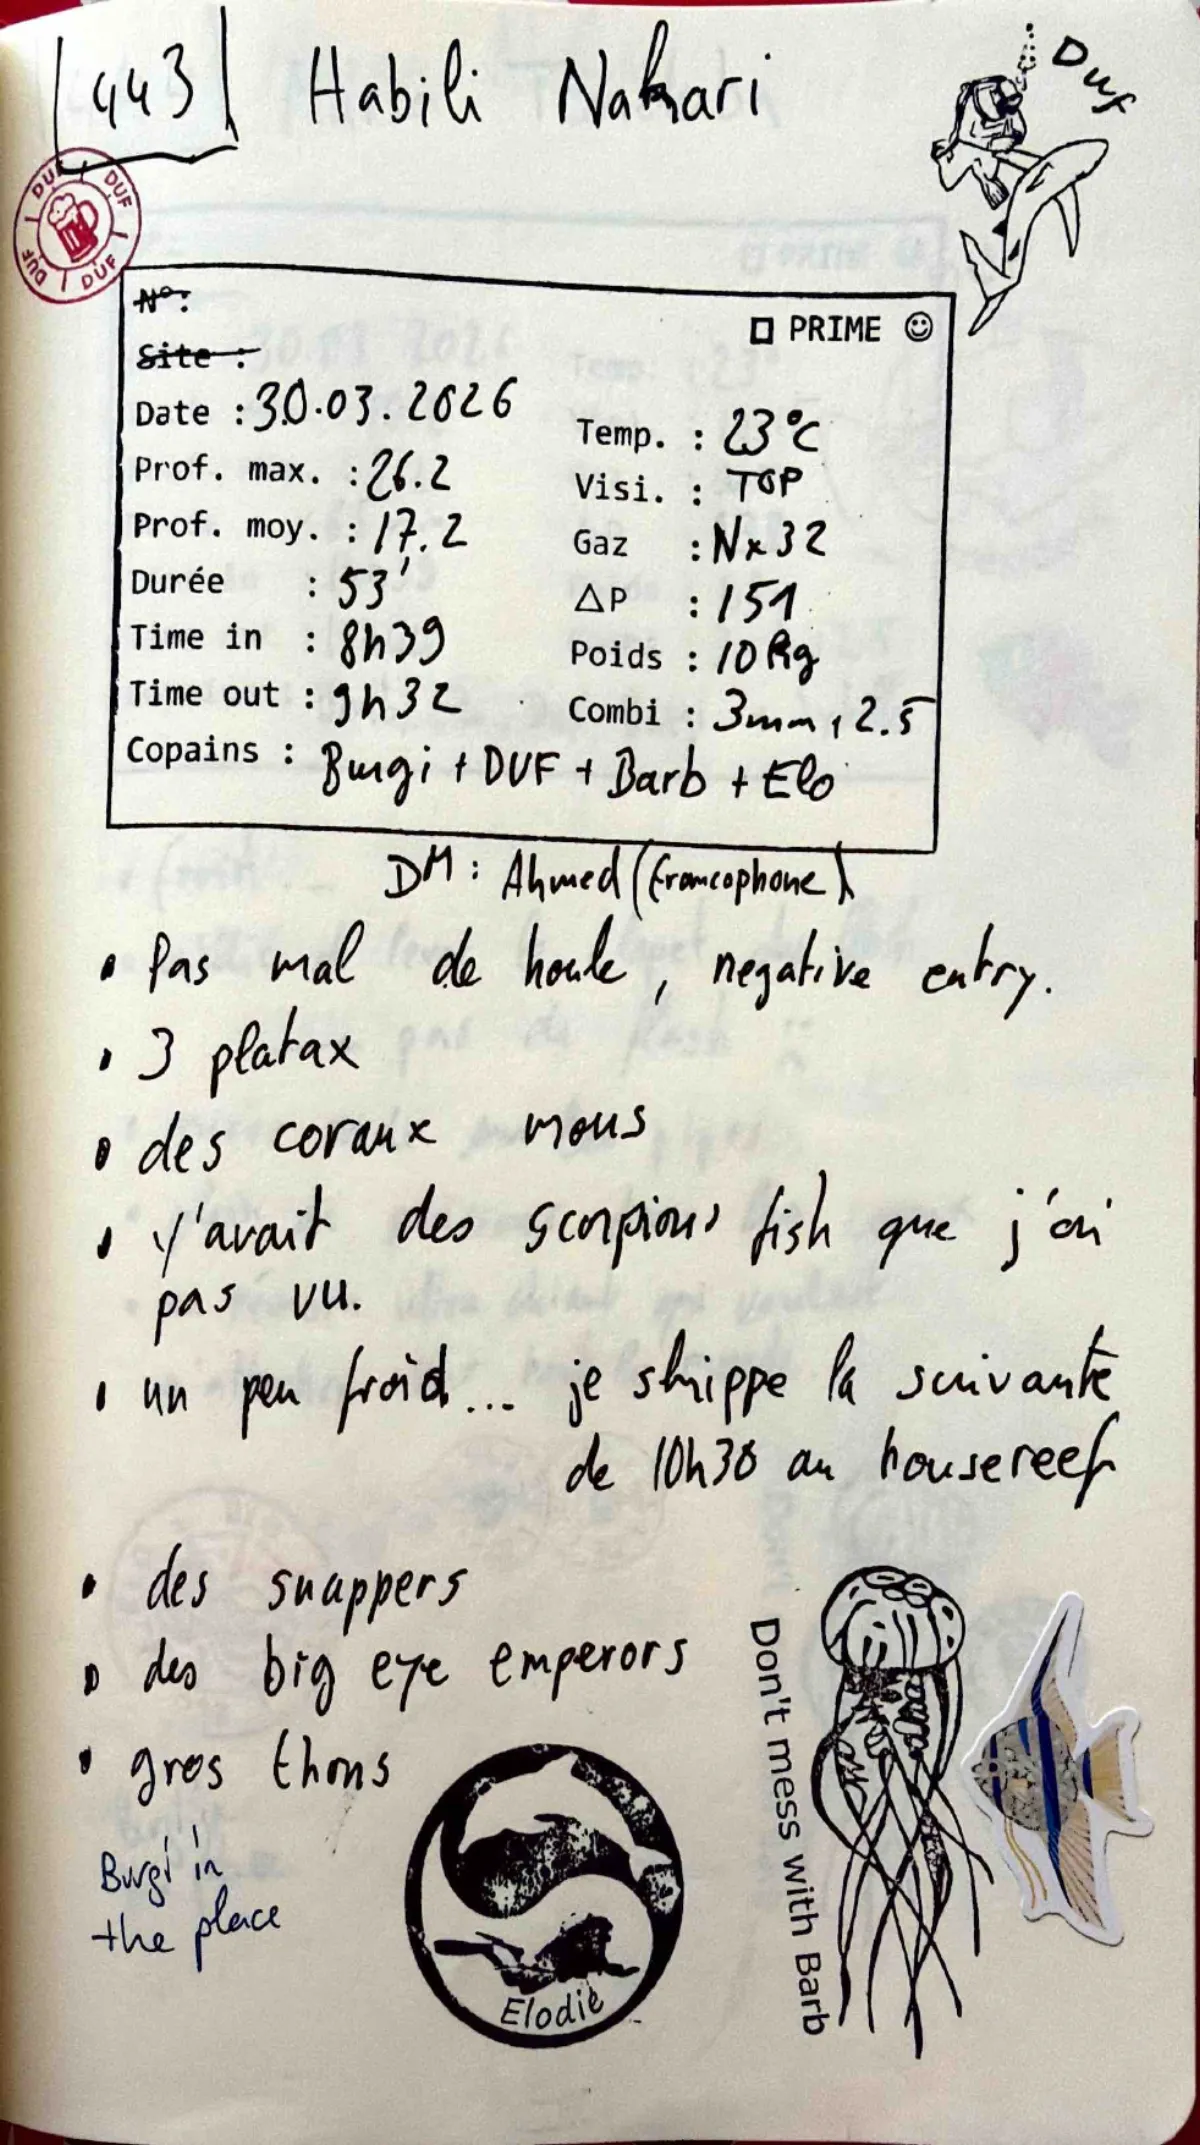 443 Habili Nakari
Duf
DUF DUF DUF DUF
N°:
PRIME
Site :
Date : 30.03.2026
Temp. : 23°C
Prof. max. : 26.2
Visi. : TOP
Prof. moy. : 17.2
Gaz : Nx32
Durée : 53'
ΔP : 151
Time in : 8h39
Poids : 10 kg
Time out : 9h32
Combi : 3mm, 2.5
Copains : Burgi + DUF + Barb + Elo
DM : Ahmed (francophone)
• Pas mal de houle, negative entry.
• 3 platax
• des coraux mous
• y'avait des scorpions fish que j'ai
pas vu.
• un peu froid... je skippe la suivante
de 10h30 au housereef
• des snappers
• des big eye emperors
• gros thons
Burgi in
the place
Elodie
Don't mess with Barb